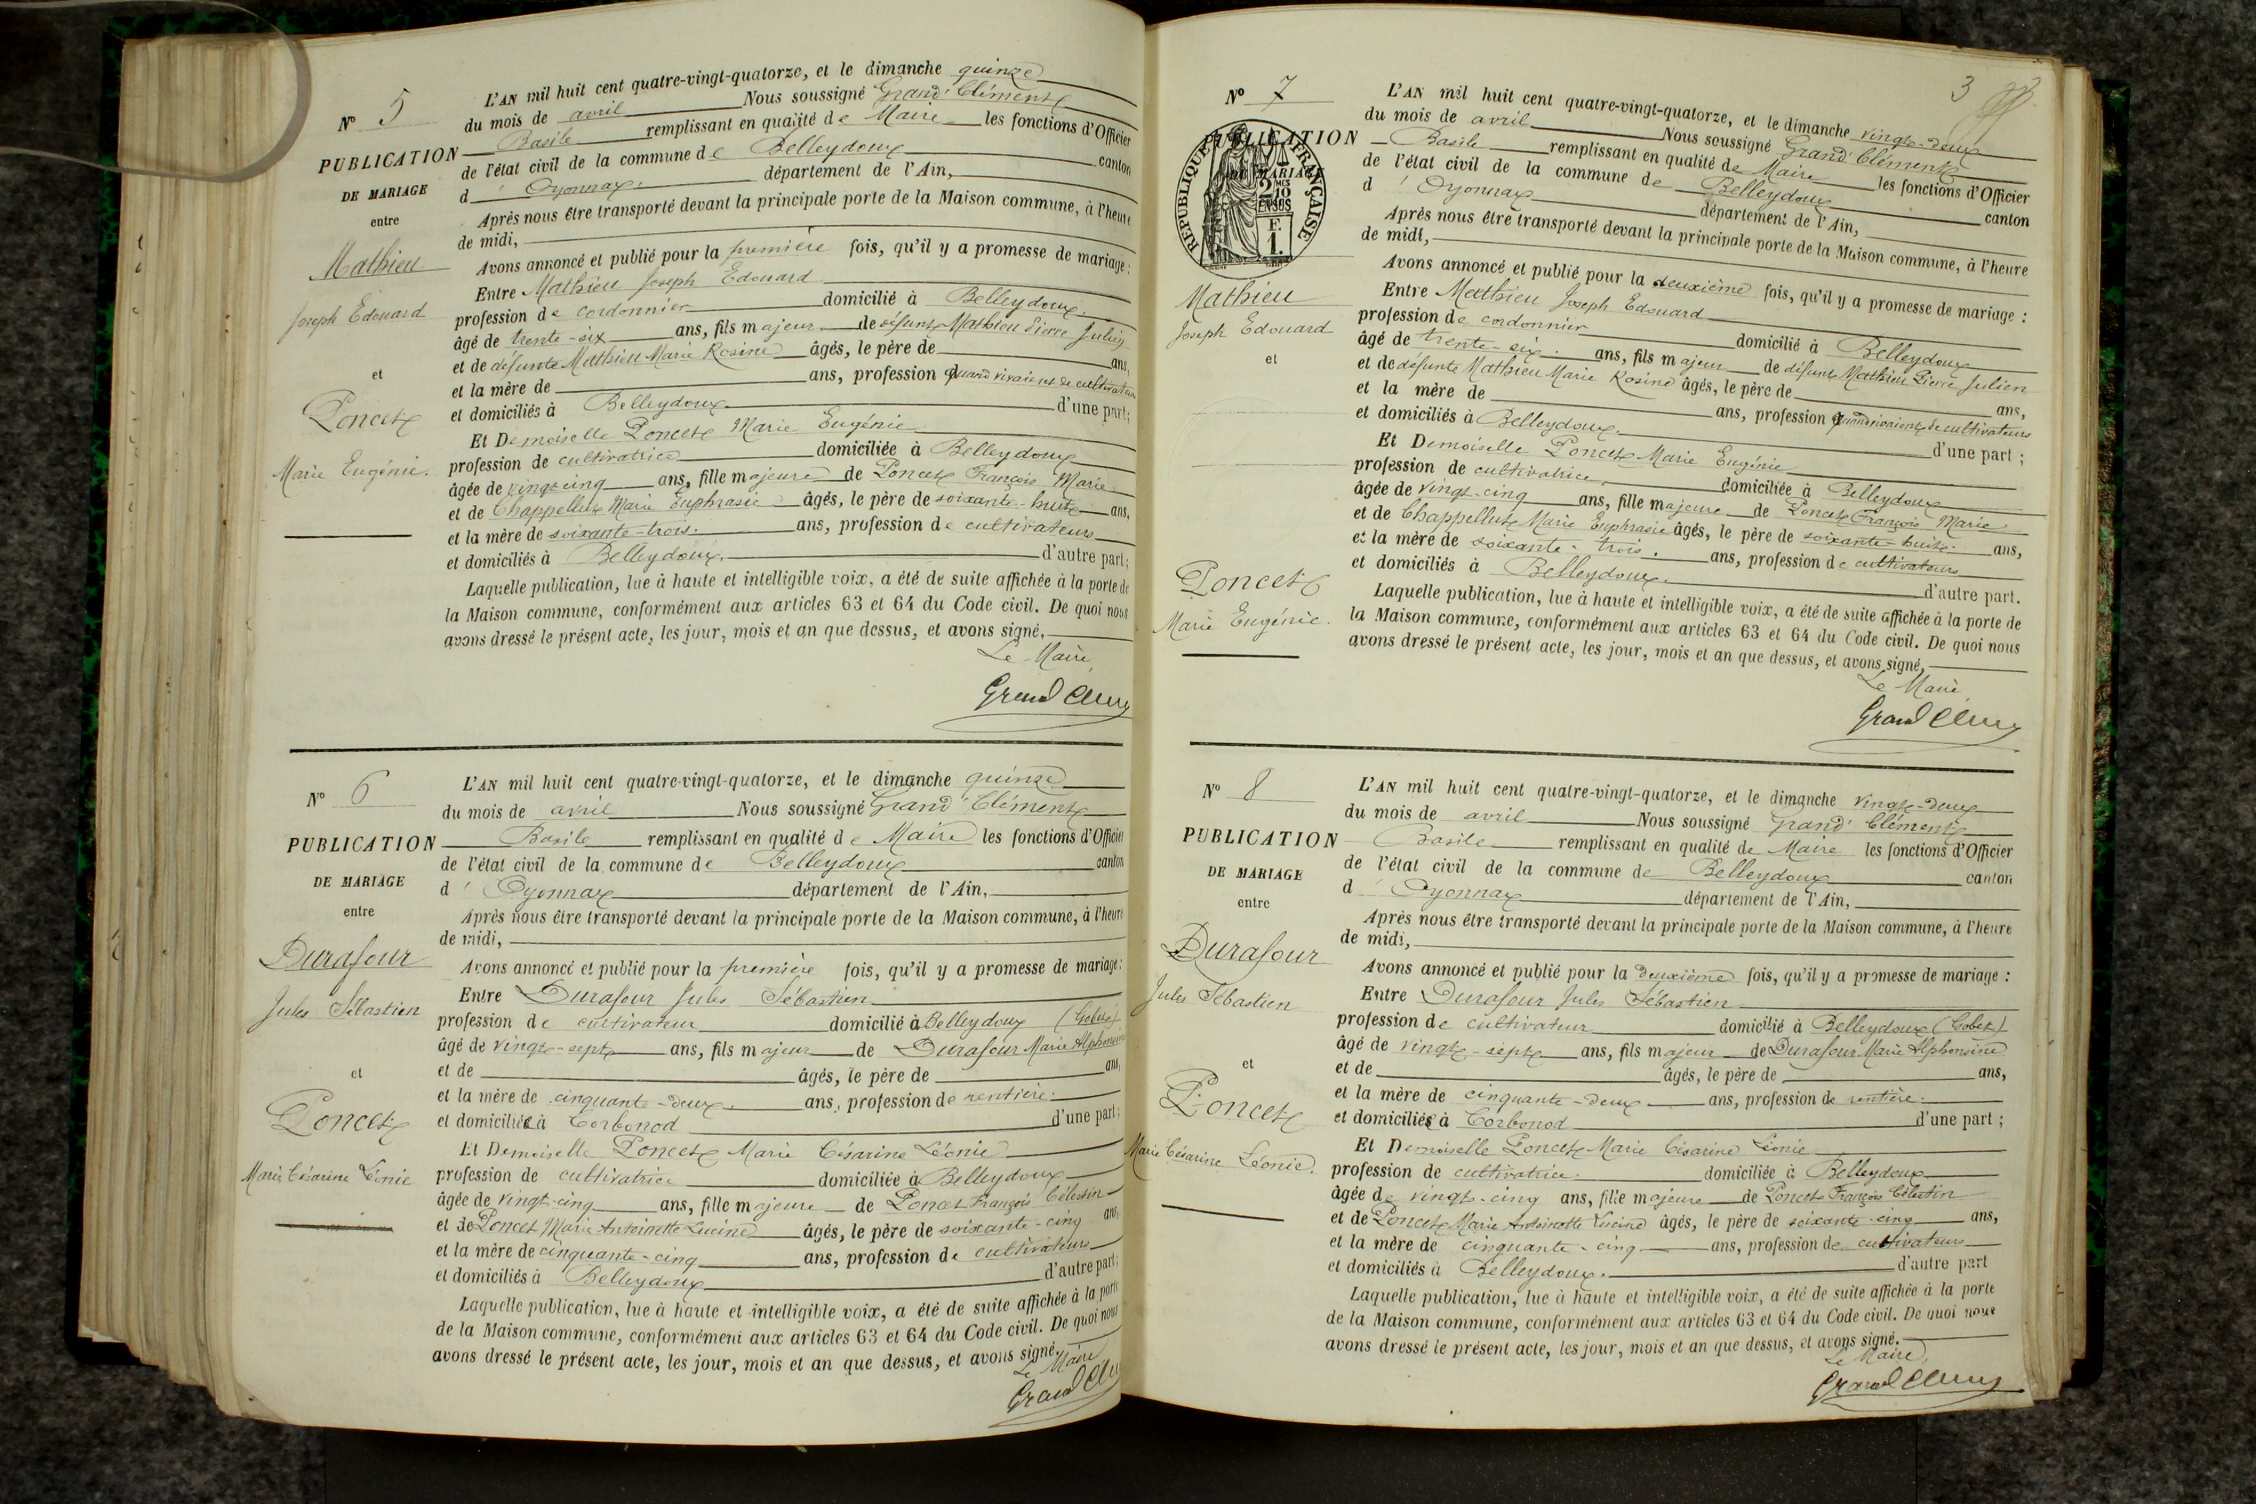 N° 5
PUBLICATION
DE MARIAGE
entre
Mathieu
Joseph Edouard
et
Poncet
Marie Eugénie.
L'AN mil huit cent quatre-vingt-quatorze, et le dimanche quinze
du mois de avril Nous soussigné Grand'Clément
Basile remplissant en qualité de Maire les fonctions d'Officier
de l'état civil de la commune de Belleydoux canton
d'Oyonnax. département de l'Ain,
Après nous être transporté devant la principale porte de la Maison commune, à l'heure
de midi,
Avons annoncé et publié pour la première fois, qu'il y a promesse de mariage :
Entre Mathieu Joseph Edouard
profession de cordonnier domicilié à Belleydoux.
âgé de trente-six ans, fils majeur de défunt Mathieu Pierre Julien
et de défunte Mathieu Marie Rosine âgés, le père de ans,
et la mère de ans, profession quand vivaient de cultivateurs
et domiciliés à Belleydoux. d'une part;
Et Demoiselle Poncet Marie Eugénie
profession de cultivatrice domiciliée à Belleydoux
âgée de vingt cinq ans, fille majeure de Poncet François Marie
et de Chappellut Marie Euphrasie âgés, le père de soixante-huit ans,
et la mère de soixante-trois. ans, profession de cultivateurs
et domiciliés à Belleydoux. d'autre part;
Laquelle publication, lue à haute et intelligible voix, a été de suite affichée à la porte de
la Maison commune, conformément aux articles 63 et 64 du Code civil. De quoi nous
avons dressé le présent acte, les jour, mois et an que dessus, et avons signé,
Le Maire,
Grand Clem
N° 6
PUBLICATION
DE MARIAGE
entre
Durafour
Jules Sébastien
et
Poncet
Marie Césarine Léonie
L'AN mil huit cent quatre-vingt-quatorze, et le dimanche quinze
du mois de avril Nous soussigné Grand'Clément
Basile remplissant en qualité de Maire les fonctions d'Officier
de l'état civil de la commune de Belleydoux canton
d'Oyonnax département de l'Ain,
Après nous être transporté devant la principale porte de la Maison commune, à l'heure
de midi,
Avons annoncé et publié pour la première fois, qu'il y a promesse de mariage:
Entre Durafour Jules Sébastien
profession de cultivateur domicilié à Belleydoux (Gobet)
âgé de vingt-sept ans, fils majeur de Durafour Marie Alphonsine
et de âgés, le père de ans,
et la mère de cinquante-deux. ans, profession de rentière.
et domiciliée à Corbonod d'une part;
Et Demoiselle Poncet Marie Césarine Léonie
profession de cultivatrice domiciliée à Belleydoux
âgée de vingt-cinq ans, fille majeure de Poncet François Célestin
et de Poncet Marie Antoinette Lucine âgés, le père de soixante-cinq ans,
et la mère de cinquante-cinq ans, profession de cultivateurs
et domiciliés à Belleydoux d'autre part;
Laquelle publication, lue à haute et intelligible voix, a été de suite affichée à la porte
de la Maison commune, conformément aux articles 63 et 64 du Code civil. De quoi nous
avons dressé le présent acte, les jour, mois et an que dessus, et avons signé.
Le Maire
Grand Cle
3
N° 7
PUBLICATION
DE MARIAGE
RÉPUBLIQUE FRANÇAISE
2/10mes
EN SUS
F.
1.
Mathieu
Joseph Edouard
et
Poncet
Marie Eugénie.
L'AN mil huit cent quatre-vingt-quatorze, et le dimanche vingt-deux
du mois de avril Nous soussigné Grand'Clément
Basile remplissant en qualité de Maire les fonctions d'Officier
de l'état civil de la commune de Belleydoux canton
d'Oyonnax département de l'Ain,
Après nous être transporté devant la principale porte de la Maison commune, à l'heure
de midi,
Avons annoncé et publié pour la deuxième fois, qu'il y a promesse de mariage :
Entre Matthieu Joseph Edouard
profession de cordonnier domicilié à Belleydoux
âgé de trente-six. ans, fils majeur de défunt Mathieu Pierre Julien
et de défunte Mathieu Marie Rosine âgés, le père de ans,
et la mère de ans, profession quand vivaient de cultivateurs
et domiciliés à Belleydoux. d'une part ;
Et Demoiselle Poncet Marie Eugénie
profession de cultivatrice. domiciliée à Belleydoux
âgée de vingt-cinq ans, fille majeure de Poncet François Marie
et de Chappellut Marie Euphrasie âgés, le père de soixante-huit. ans,
et la mère de soixante-trois. ans, profession de cultivateurs
et domiciliés à Belleydoux. d'autre part.
Laquelle publication, lue à haute et intelligible voix, a été de suite affichée à la porte de
la Maison commune, conformément aux articles 63 et 64 du Code civil. De quoi nous
avons dressé le présent acte, les jour, mois et an que dessus, et avons signé,
Le Maire,
Grand Clem
N° 8
PUBLICATION
DE MARIAGE
entre
Durafour
Jules Sébastien
et
Poncet
Marie Césarine Léonie.
L'AN mil huit cent quatre-vingt-quatorze, et le dimanche vingt-deux
du mois de avril Nous soussigné Grand'Clément
Basile remplissant en qualité de Maire les fonctions d'Officier
de l'état civil de la commune de Belleydoux canton
d'Oyonnax département de l'Ain,
Après nous être transporté devant la principale porte de la Maison commune, à l'heure
de midi,
Avons annoncé et publié pour la deuxième fois, qu'il y a promesse de mariage :
Entre Durafour Jules Sébastien
profession de cultivateur domicilié à Belleydoux (Gobet)
âgé de vingt-sept ans, fils majeur de Durafour Marie Alphonsine
et de âgés, le père de ans,
et la mère de cinquante-deux ans, profession de rentière.
et domiciliée à Corbonod d'une part ;
Et Demoiselle Poncet Marie Césarine Léonie
profession de cultivatrice. domiciliée à Belleydoux
âgée de vingt-cinq ans, fille majeure de Poncet François Célestin
et de Poncet Marie Antoinette Lucine âgés, le père de soixante-cinq ans,
et la mère de cinquante-cinq ans, profession de cultivateurs
et domiciliés à Belleydoux. d'autre part
Laquelle publication, lue à haute et intelligible voix, a été de suite affichée à la porte
de la Maison commune, conformément aux articles 63 et 64 du Code civil. De quoi nous
avons dressé le présent acte, les jour, mois et an que dessus, et avons signé.
Le Maire,
Grand Clem